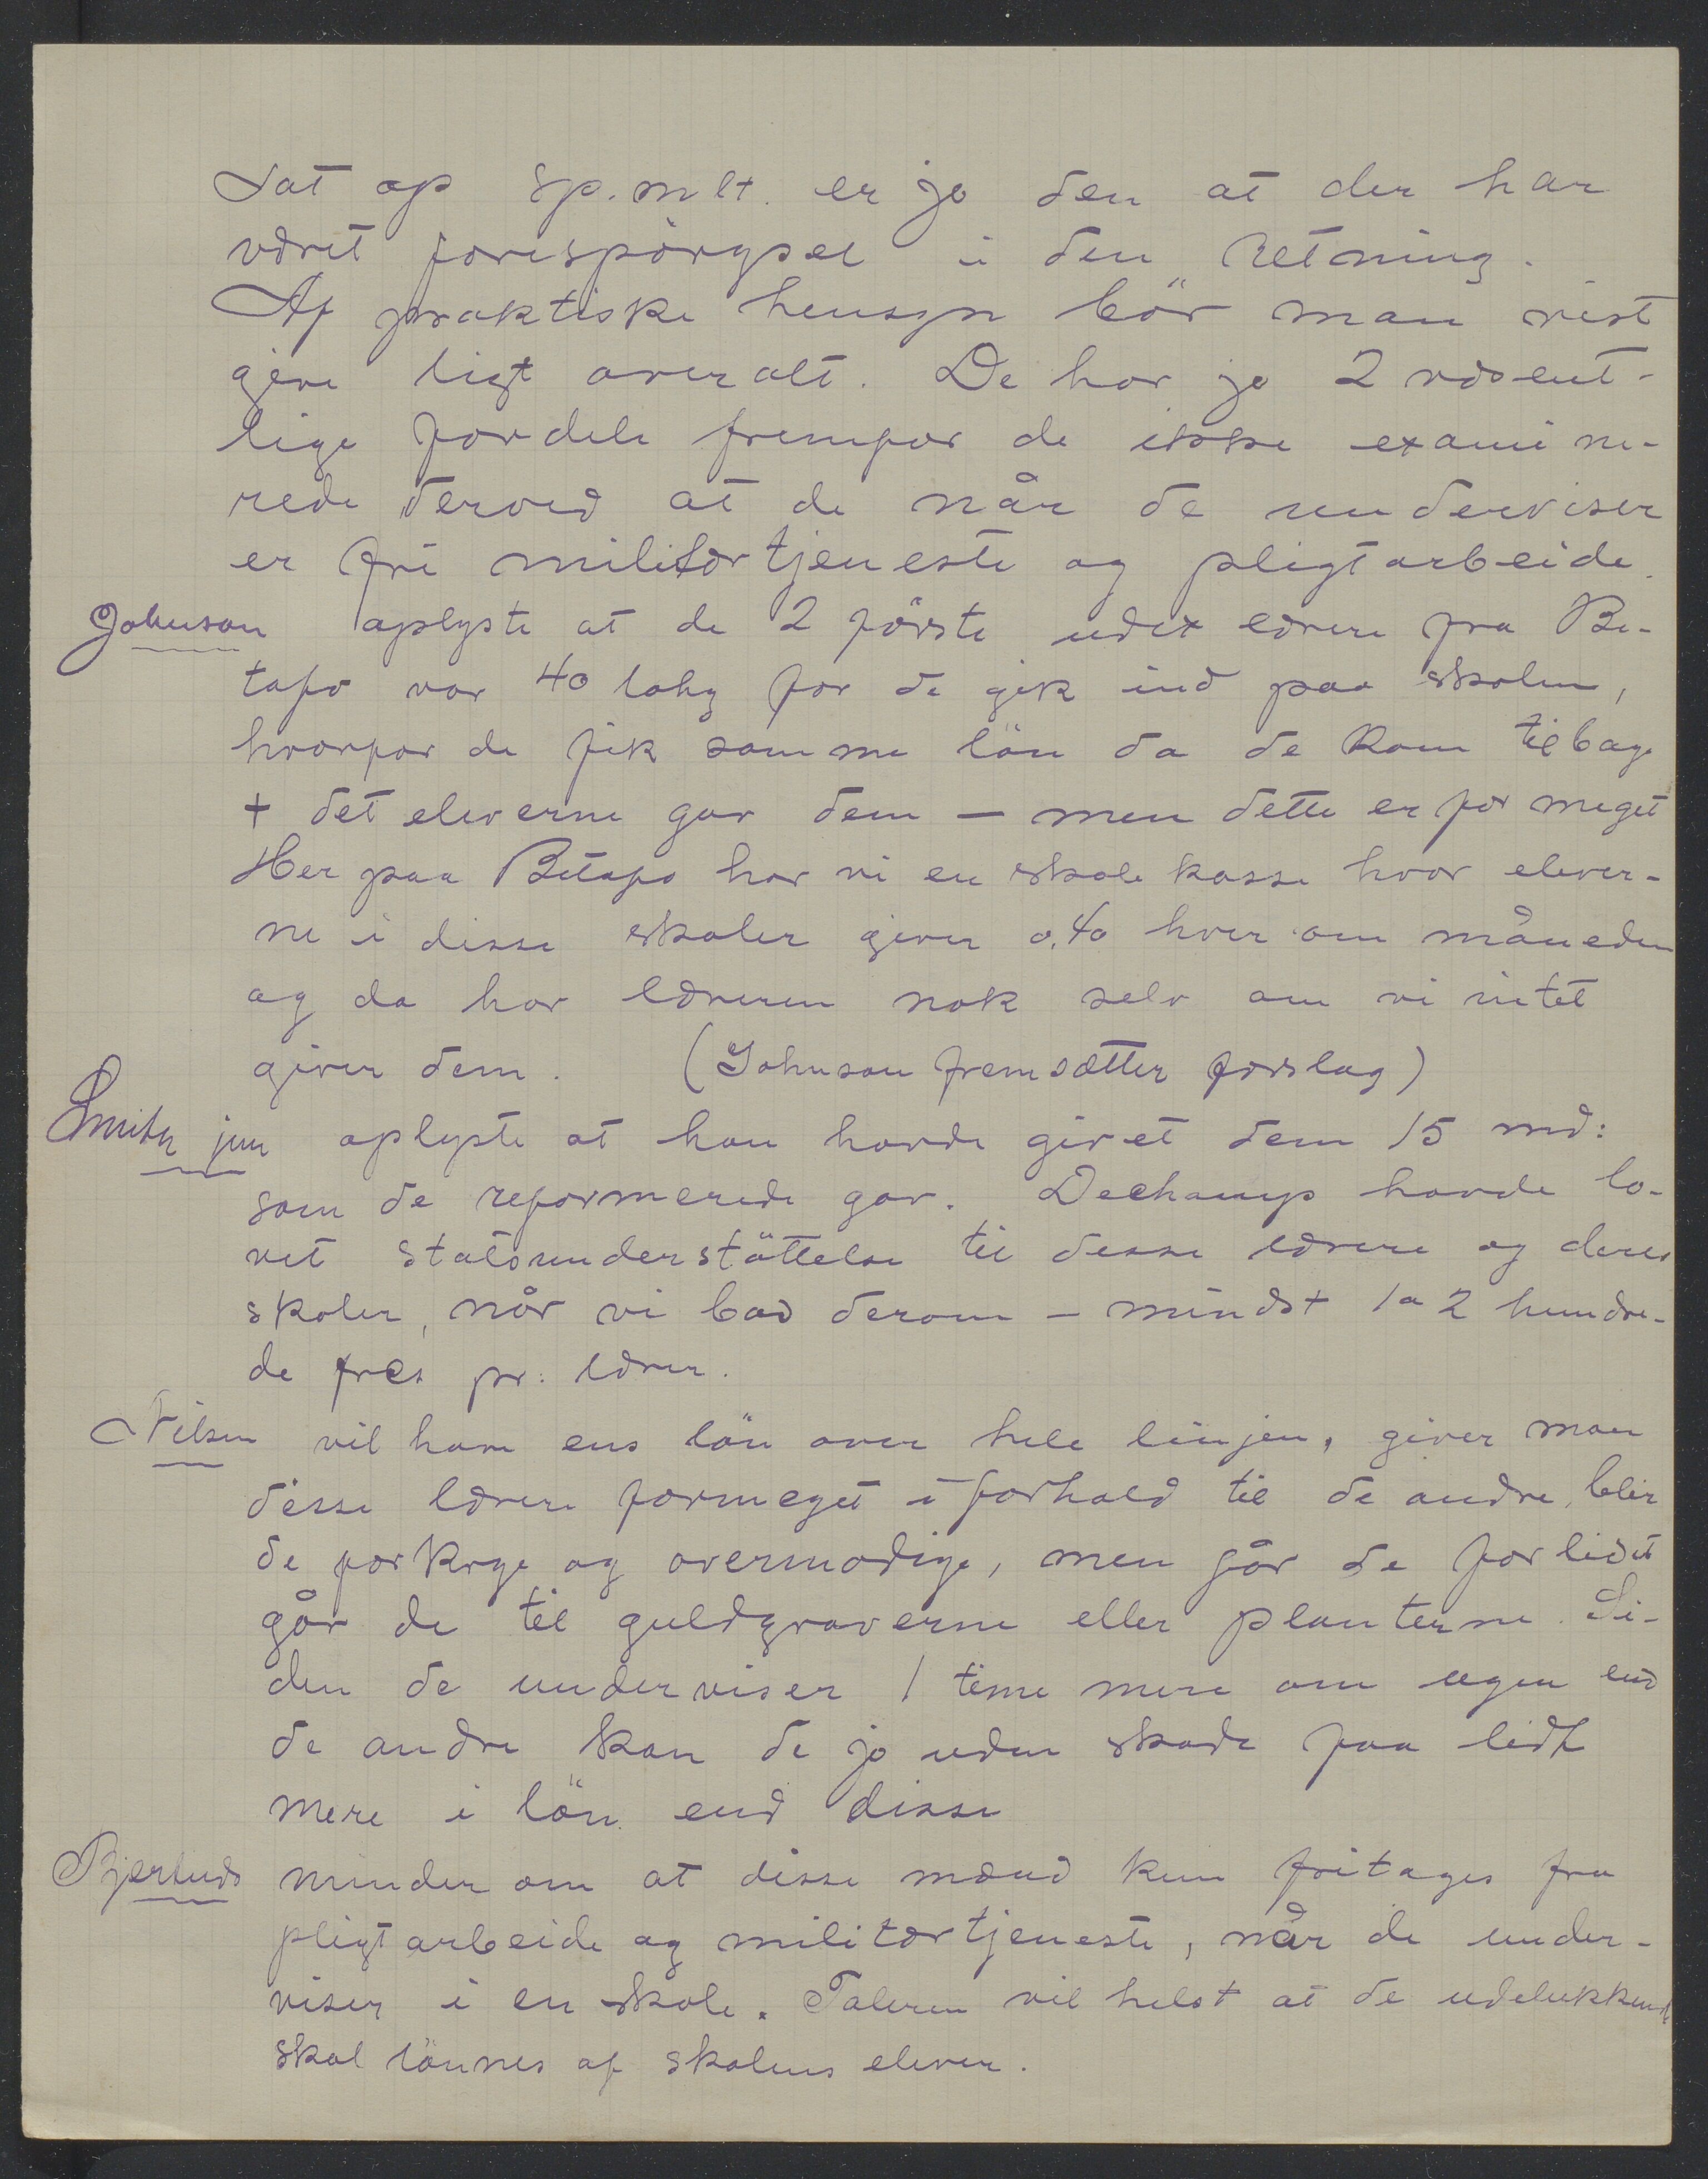 sat op sp.mlt. er jo den at der har
været forespörgsel i den retning.
Af praktiske hensyn bör man vist
give ligt overalt. De har jo 2 væsent-
lige fordele fremfor de ikke examine-
rede derved at de når de underviser
er fri militærtjeneste og pligtarbeide.
Johnson oplyste at de 2 förste udex lærere fra Be-
tafo var 40 lahy för de gik ind paa skolen,
hvorfor de fik samme lön da de kom tilbage
+ det eleverne gav dem – men dette er for meget
Her paa Betafo har vi en skolekasse hvor elever-
ne i disse skoler giver 0,40 hver om måneden
og da har læreren nok selv om vi intet
giver dem. (Johnson fremsætter forslag)
Smith jun oplyste at han havde givet dem 15 md:
som de reformerede gav. Dechamp havde lo-
vet statsunderstöttelse til disse lærere og deres
skoler, når vi bad derom – mindst 1 a 2 hundre-
de frcs pr: lærer.
Nilsen vil have ens lön over hele linjen, giver man
disse lærere formeget i forhold til de andre, blir
de forkrye og overmodige, men får de forlidet
går de til guldgraverne eller planterne. Si-
den de underviser 1 time mere om ugen end
de andre kan de jo uden skade faa lidt
mere i lön end disse
Bjertnæs minder om at disse mænd kun fritages fra
pligtarbeide og militærtjeneste, når de under-
viser i en skole. Taleren vil helst at de udelukkende
skal lönnes af skolens elever.